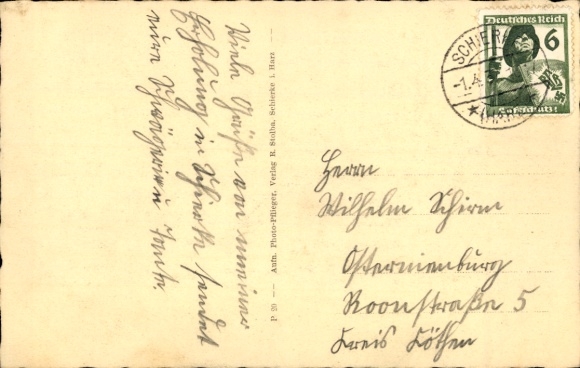 Viele Grüße von meiner
Erholung in Schierke sendet
eure Schwägerin u Tante.
P 29 — Aufn. Photo-Pflieger, Verlag R. Stolba, Schierke i. Harz
Deutsches Reich
6
Luftschutz!
SCHIER
-1.4
(HAR
Herrn
Wilhelm Schirm
Osternienburg
Roonstraße 5
Kreis Cöthen